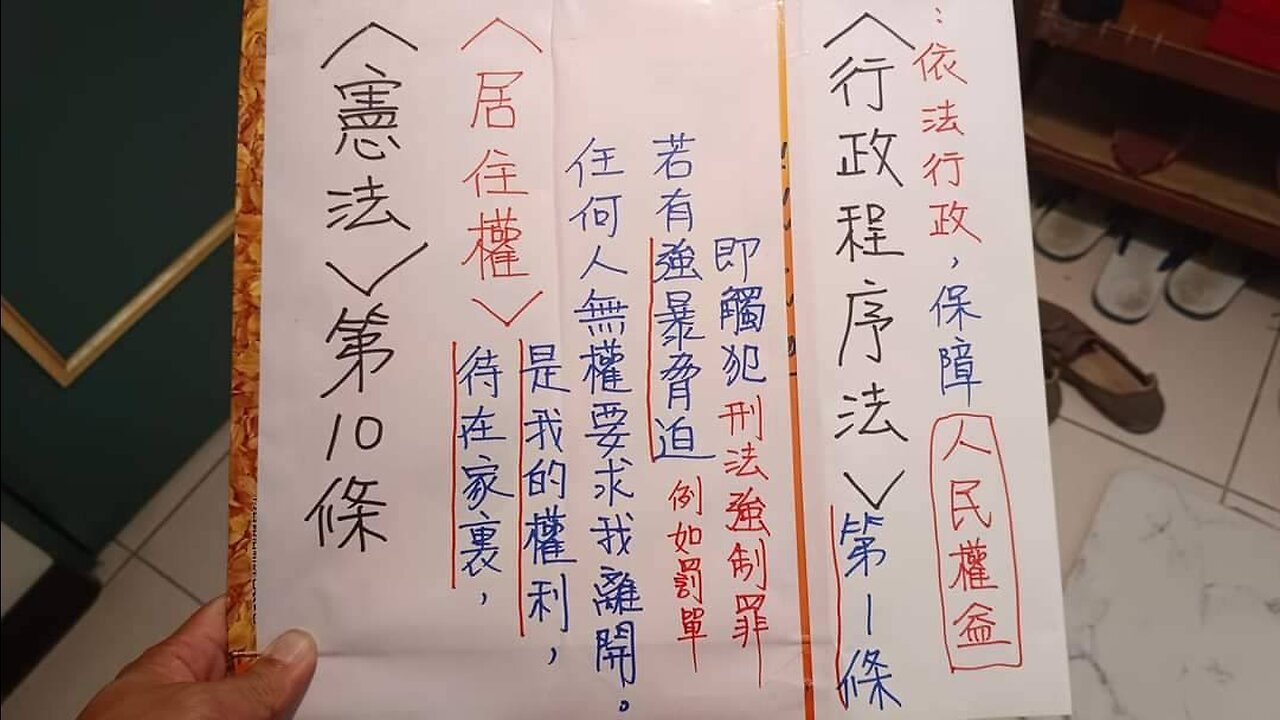 〈憲法〉第10條
〈居住權〉待在家裏，
是我的權利，
任何人無權要求我離開。
若有強暴脅迫 例如罰單
即觸犯刑法強制罪
〈行政程序法〉第1條
：依法行政，保障人民權益